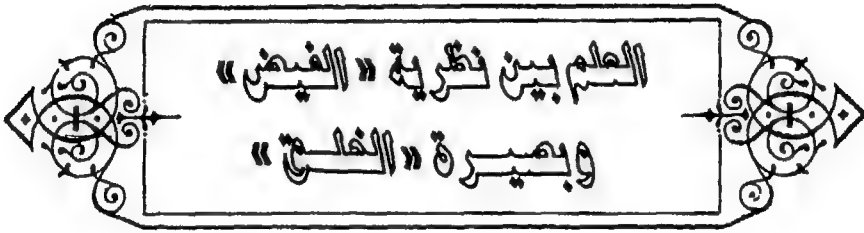 العلم بين نظرية «الفيض»
وبصيرة «الخلق»